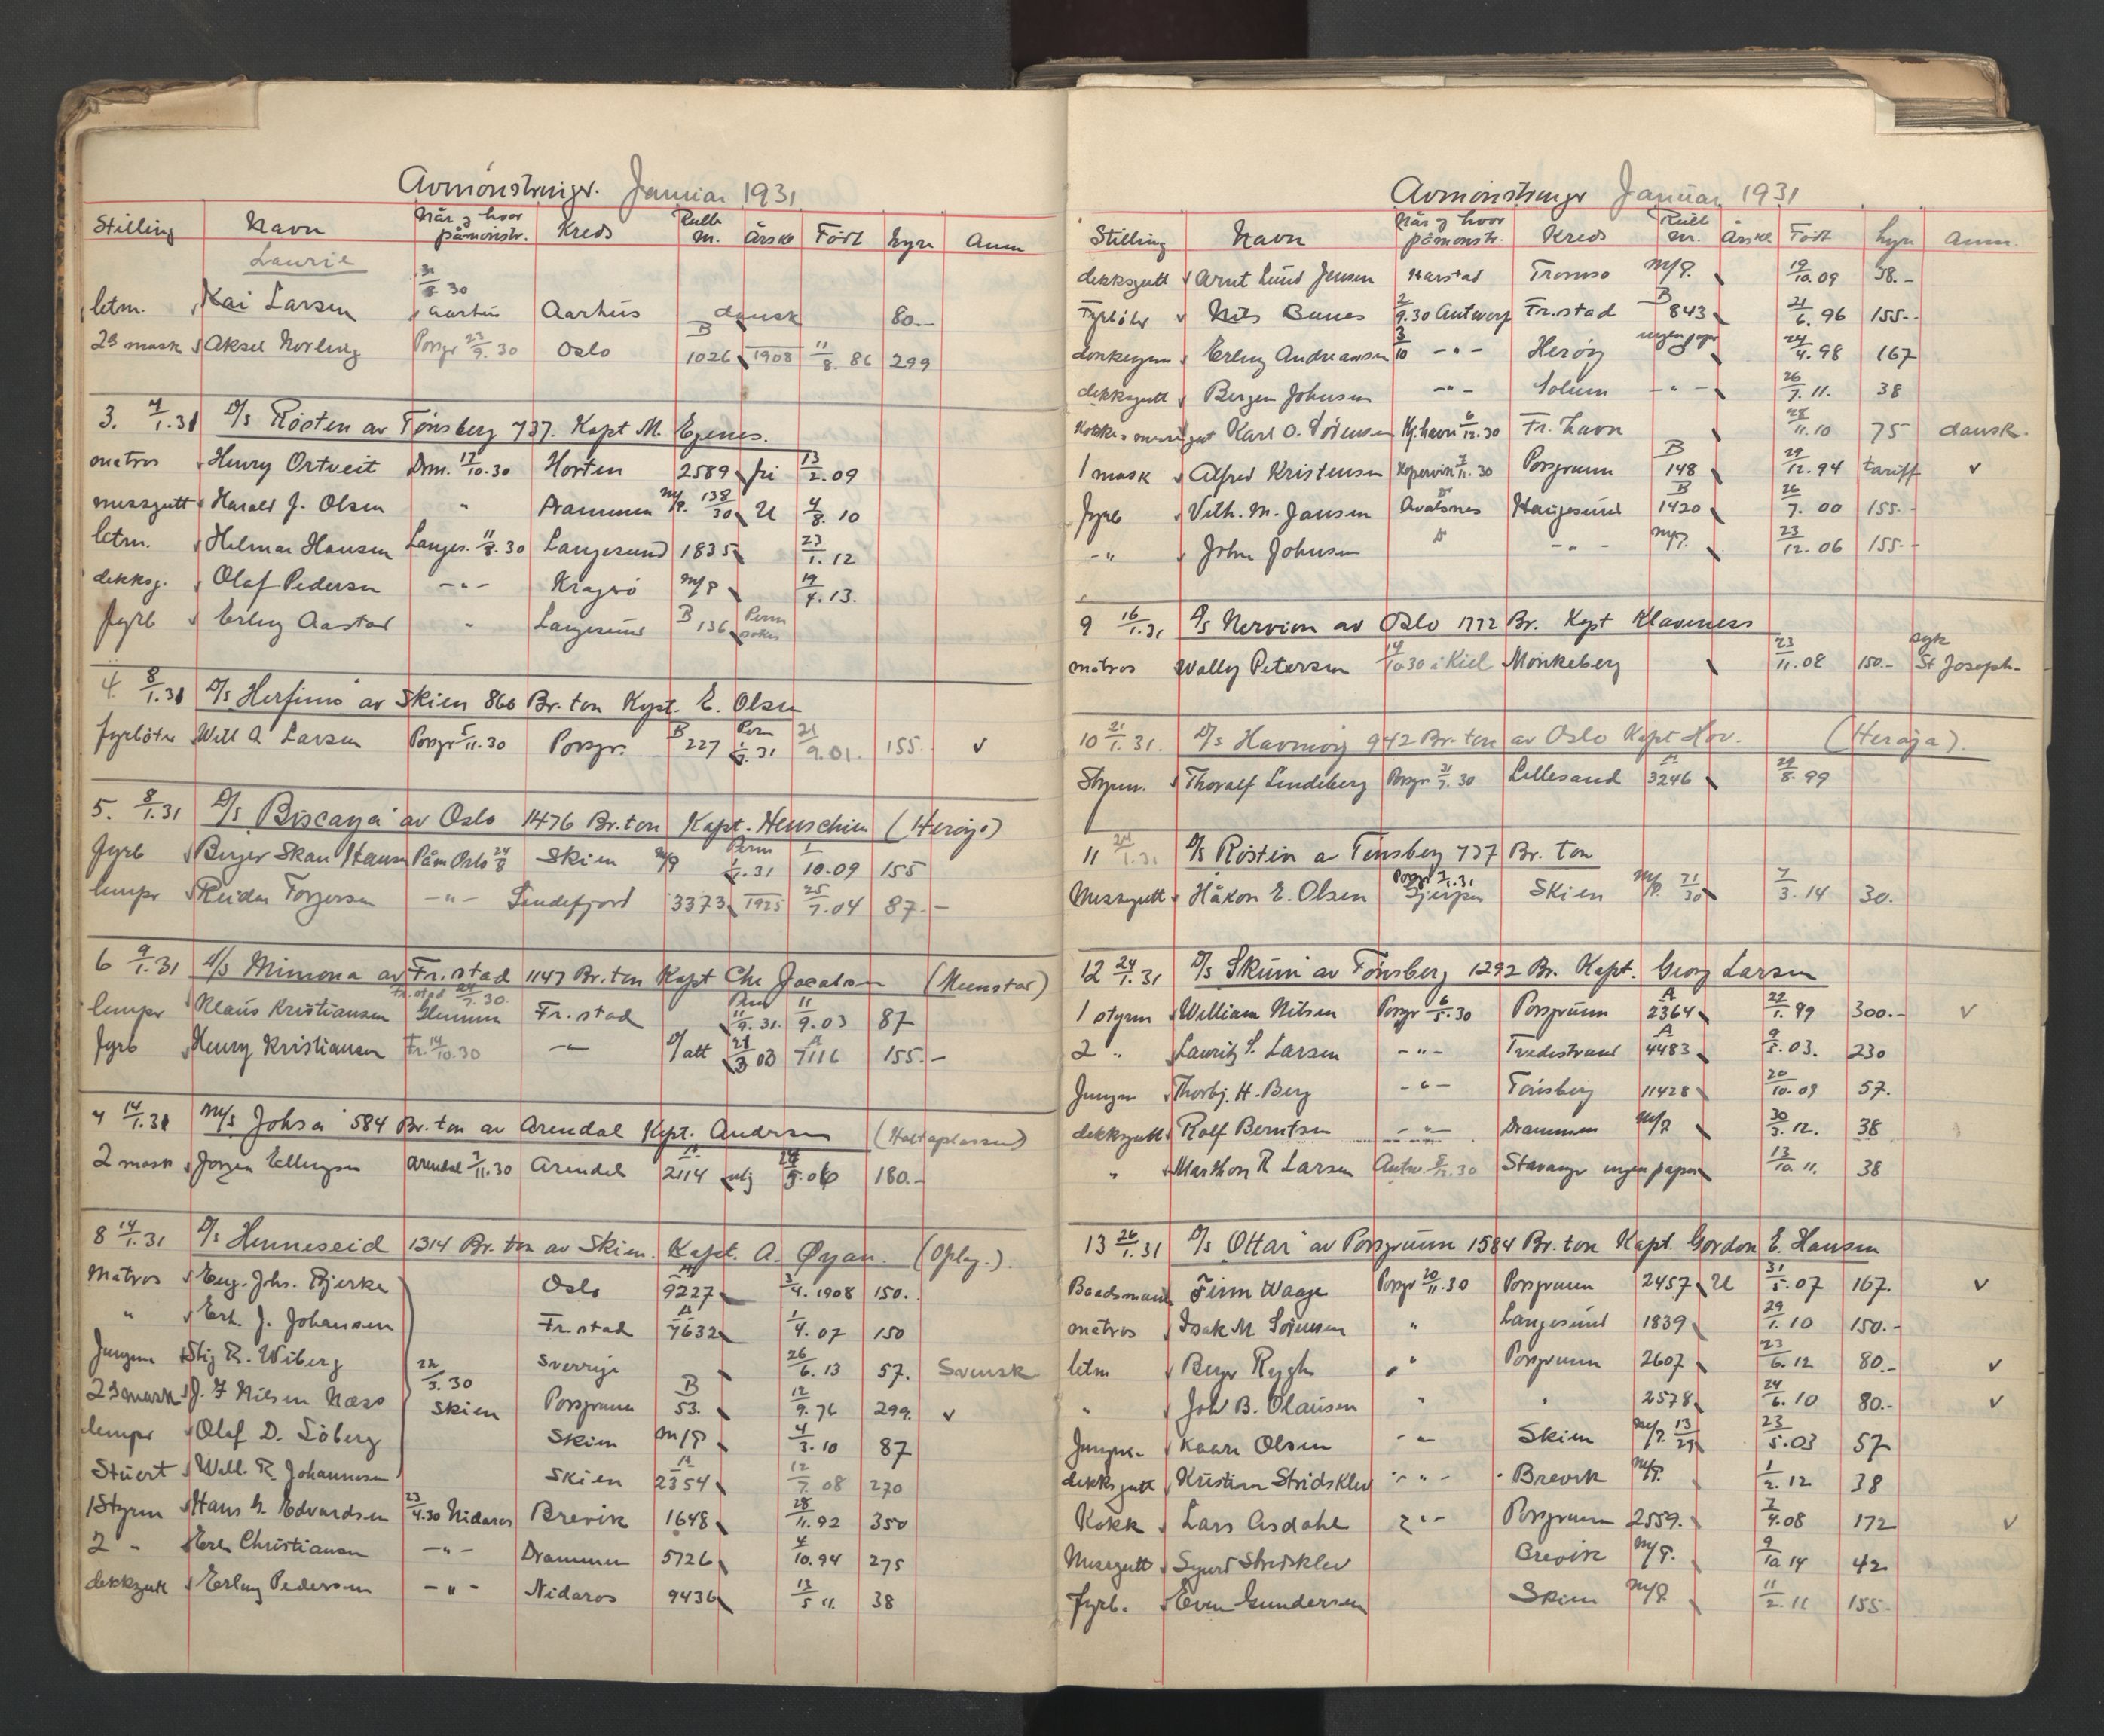 Avmönstringer. Januar 1931
Stilling Navn Når og hvor påmönstr. Kreds Rulle nr. Årskl Födt hyre Anm
Laurie
letm. Kai Larsen 31/8 30 Aarhus Aarhus dansk 80.-
2den mask Aksel Norling Porsgr 23/9. 30 Oslo B 1026 1908 11/8. 86 299
3. 7/1.31 D/s Rösten av Tönsberg 737. Kapt M. Egenes.
matros Henry Ortveit Drm. 17/10.30 Horten 2589 fri 13/2.09
messgutt Harald J. Olsen " Drammen M/P. 138/30 U 4/8. 10
letm. Hilmar Hansen Langes. 11/8.30 Langesund 1835 23/1.12
dekksg. Olaf Pedersen -"- Kragerö M/P 19/4.13.
Fyrb Erling Aastad " Langesund B 136
4. 8/1.31 D/s Herfinns av Skien 860 Br. ton Kapt. E. Olsen
fyrböter Will A Larsen Porsgr 5/11.30 Porsgr. B 227 1/1.31 21/9.01. 155. v
5. 8/1.31 D/s Biscaya av Oslo 1476 Br.ton Kapt. Henschien (Heröya)
fyrb Birger Skau Hansen Påm Oslo 24/8 Skien M/P 1/1.31 1/10.09 155
lempr Reidar Torgersen -"- Sandefjord 3373 1925 25/7.04 87.-
6 9/1.31 D/s Mimona av Fr.stad 1147 Br.ton Kapt Chr Jacobsen (Menstad)
lempr Klaus Kristiansen Fr.stad 24/7.30. Glemmen Fr.stad 11/9.31. 11/9.03 87
fyrb Henry Kristiansen Fr. 14/10.30 -"- D/att 21/3 03 A 7116 155.-
7 14/1.31 M/s Johsa 584 Br.ton av Arendal Kapt. Andersen
2 mask Jörgen Ellingsen Arendal 3/11.30 Arendal A 2114 24/5.06 180.-
8 14/1.31 D/s Henneseid 1314 Br. ton av Skien. Kapt. A. Öyan. (Oplag.).
Matros Eug. Johs. Bjerke Oslo A 9227 3/4. 1908 150.
" Erh. J. Johansen Fr.stad A 7632 1/4. 07 150
Jungm Stig R. Wiberg Sverrige 26/6. 13 57. Svensk
2den mask J. F Nilsen Næss 22/3.30 Skien Porsgrunn B 53. 12/9.76 299. v
lempr Olaf D. Söberg Skien M/P 4/3. 10 87
Stuert Walb. R. Johannesen Skien A 2354 12/7. 08 270
1 Styrm Hans G. Edvardsen 23/4.30 Nidaros Brevik 1648 28/11.92 350
2 - Erh Christiansen -"- Drammen 5726 4/10.94 275
dekksgutt Erling Pedersen -"- Nidaros 9436 13/5 11. 38
Avmönstringer Januar 1931
Stilling Navn Når og hvor påmönstr. Kreds Rull nr. Årskl Födt hyre Anm.
dekksgutt Arnt Lund Jensen Harstad Tromsö M/P. 19/10.09 38.-
Fyrböter Nils Bunes 2/9.30 Antwerp Fr.stad B 843 21/6. 96 155.-
donkeym Erling Andreassen 3/10 -"- Heröy ingen papir 24/4.98 167
dekksgutt Bergen Johnsen -"- Solum -"- 26/7. 11. 38
Kokks messegut Karl O. Sörensen Kj.havn 6/12.30 Fr. havn 28/11.10 75 dansk.
1 mask Alfred Kristensen Kopervik 7/11. 30 Porsgrunn B 148 29/12.94 tariff v
fyrb Vilh. M. Jansen Avalsnes Haugesund B 1420 26/7. 00 155.-
-"- John Johnsen -"- M/P. 23/12.06 155.-
9 16/1.31 D/s Nervion av Oslo 1772 Br. Kapt Klaveness
matros Wally Petersen 14/10 30 i Kiel Mönkeberg 23/11.08 150.- syk St Joseph.
10 21/1.31. D/s Havmöy 942 Br.ton av Oslo Kapt Hov. (Heröya).
Styrm. Thoralf Lindeberg Porsgr 31/7. 30 Lillesand A 3246 29/8.99
11 24/1.31 D/s Rösten a Tönsberg 737 Br. ton
Messgutt Håkon E. Olsen Porsgr 7/1.31 Gjerpen Skien M/P. 21/30 7/3. 14 30.
12 24/1.31 D/s Skum av Tönsberg 1292 Br. Kapt. Georg Larsen
1 styrm William Nilsen Porsgr 6/5.30 Porsgrunn A 2364 22/1.99 300.- v
2 " Lauritz S. Larsen -"- Tvedestrand A 4483 9/5.03. 230
Jungm Thorbj. H. Berg -"- Tönsberg 11428 20/10.09 57.
dekksgutt Rolf Berntsen -"- Drammen M/P 30/3.12. 38
" Marthon R Larsen Antw. 5/12.30 Stavanger ingen papir 13/10 11. 38
13 26/1.31 D/s Ottar av Porsgrunn 1584 Br.ton Kapt. Gordon E. Hansen
Baadsmann Finn Waage Porsgr 20/11.30 Porsgrunn 2457 U 31/5.07 167. v
matros Isak M Sörensen " Langesund 1839 29/1. 10 150.-
letm Birger Rygh " Porsgrunn 2607 23/6.12 80.- v
" Joh B. Olausen " " 2578 24/6. 10 80.- v
Jungm. Kaare Olsen -"- Skien M/P. 13/29 23/5.03 57
dekksgutt Kristian Stridsklev -"- Brevik M/P. 1/2. 12 38
Kokk Lars Asdahl -"- Porsgrunn 2559. 7/4.08 172 v
Messgutt Sigurd Stridsklev Brevik M/P. 9/10 14 42
Fyrb. Even Gundersen Skien M/P. 11/2. 11 155.-